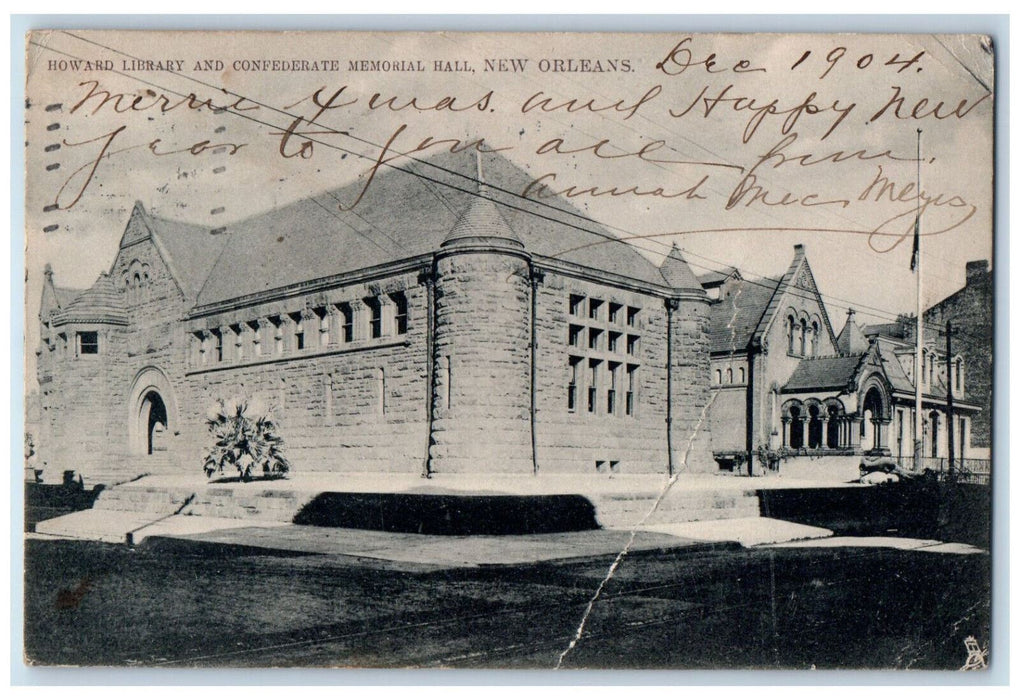 HOWARD LIBRARY AND CONFEDERATE MEMORIAL HALL, NEW ORLEANS.
Dec 1904.
Merrie Xmas. and Happy New
Year to you all from.
annah